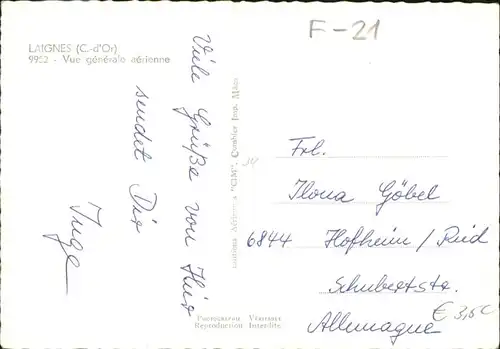 F-21
LAIGNES (C.-d'Or)
9952 - Vue générale aérienne
Viele Grüße von Hier
sendet Dir
Inge
"CIM". Combier Imp. Mâcon
Frl.
Ilona Göbel
6844 Hofheim / Ried
Schubertstr.
Allemagne
Reproduction Interdite
€ 3,50